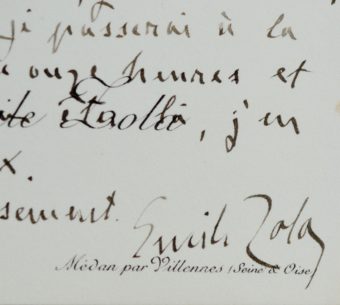 je passerai à la
onze heures et
, j'en
x.
sement.
Emile Zola
Médan par Villennes (Seine & Oise)